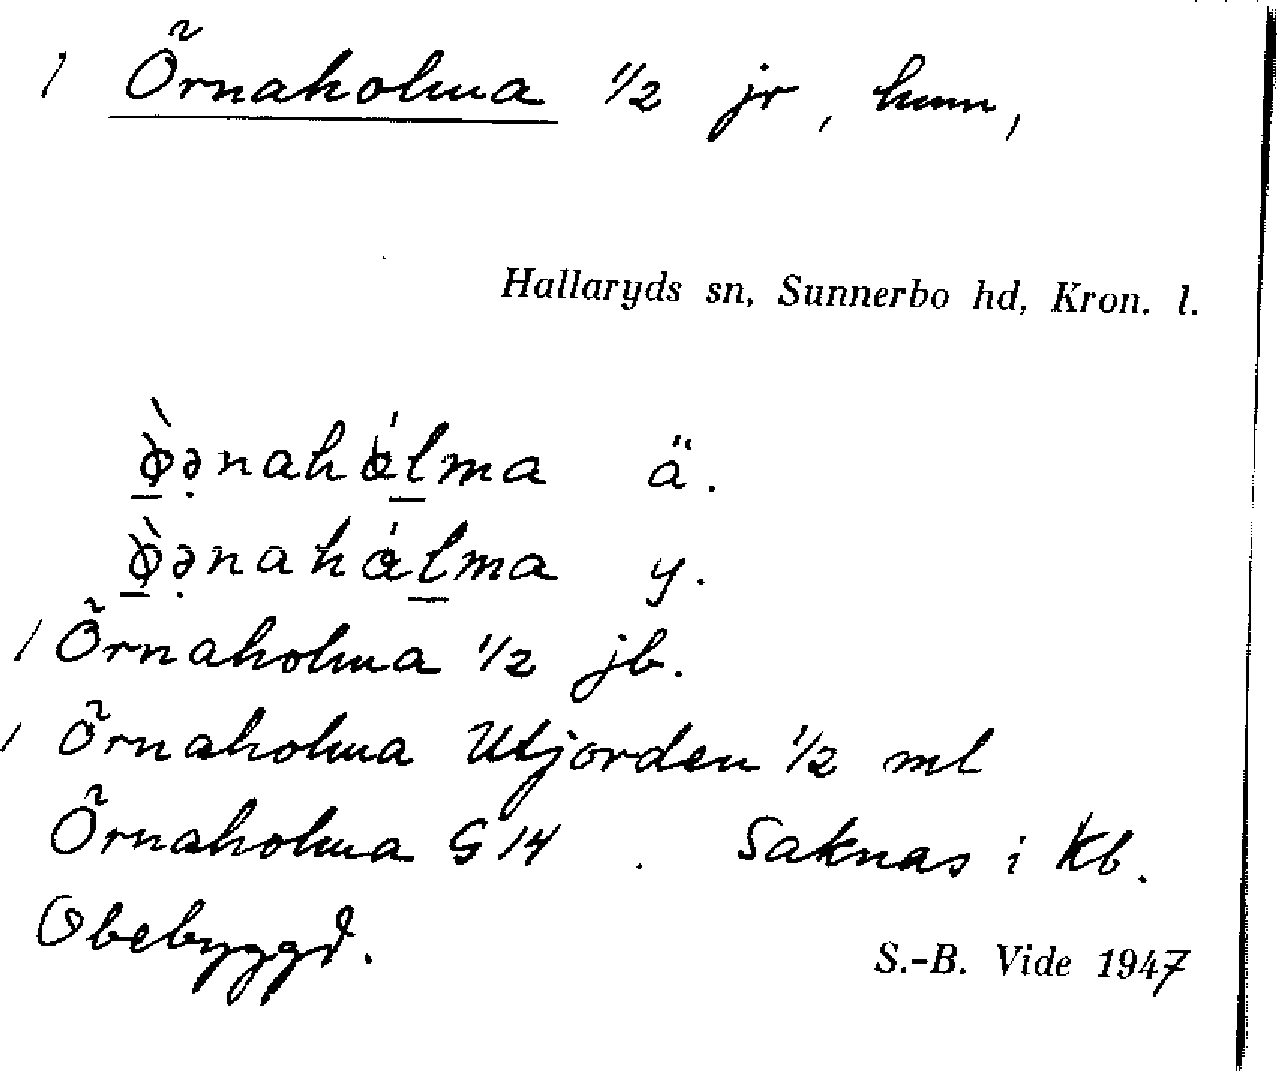 1 Örnaholma 1/2 jr, hmn,
Hallaryds sn, Sunnerbo hd, Kron. l.
ä.
y.
1 Örnaholma 1/2 jb.
1 Örnaholma Utjorden 1/2 ml
Örnaholma G 14 . Saknas i Kb.
Obebyggd.
S.-B. Vide 1947